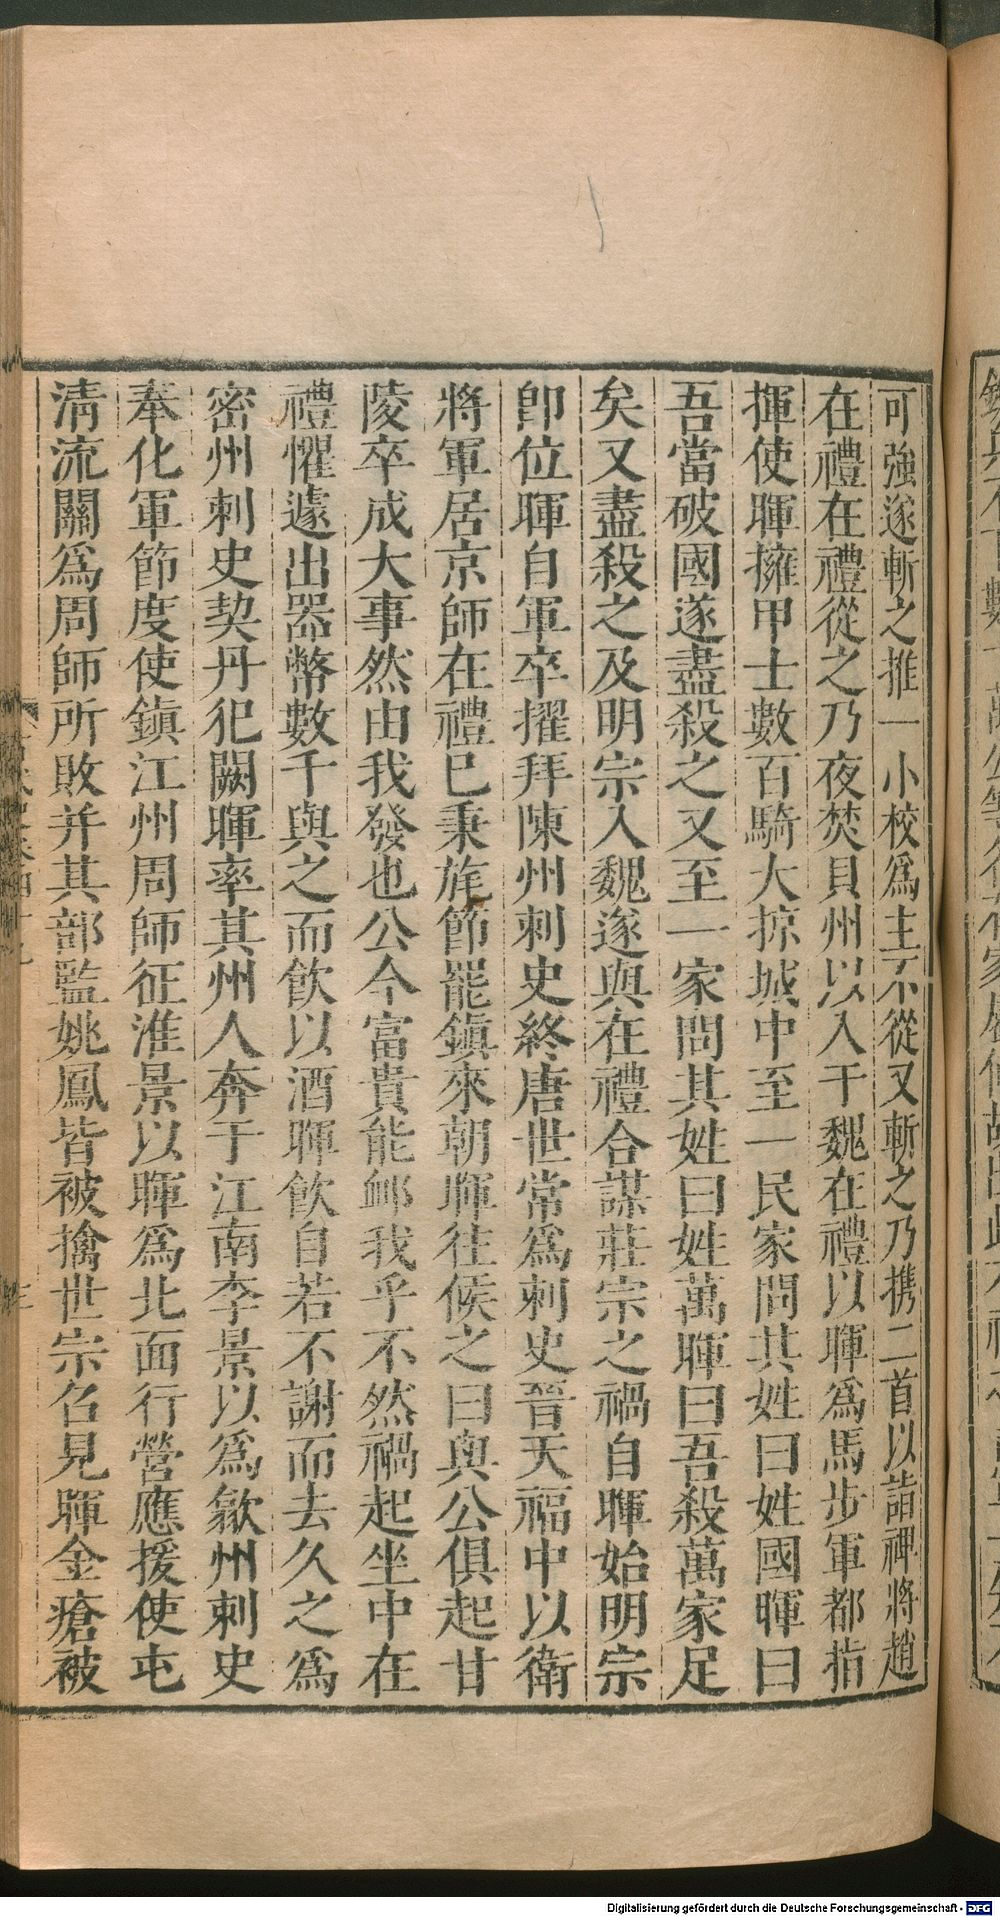 可強遂斬之推一小校爲主不從又斬之乃携二首以詣裨將趙
在禮在禮從之乃夜焚貝州以入于魏在禮以暉爲馬步軍都指
揮使暉擁甲士數百騎大掠城中至一民家問其姓曰姓國暉曰
吾當破國遂盡殺之又至一家問其姓曰姓萬暉曰吾殺萬家足
矣又盡殺之及明宗入魏遂與在禮合謀莊宗之禍自暉始明宗
卽位暉自軍卒擢拜陳州刺史終唐世常爲刺史晉天福中以衛
將軍居京師在禮巳秉旄節罷鎭來朝暉往候之曰與公俱起甘
陵卒成大事然由我發也公今富貴能䘏我乎不然禍起坐中在
禮懼遽出器幣數千與之而飮以酒暉飮自若不謝而去久之爲
密州刺史契丹犯闕暉率其州人奔于江南李景以爲歙州刺史
奉化軍節度使鎭江州周師征淮景以暉爲北面行營應援使屯
清流關爲周師所敗并其部監姚鳳皆被擒世宗召見暉金瘡被
Digitalisierung gefördert durch die Deutsche Forschungsgemeinschaft - DFG